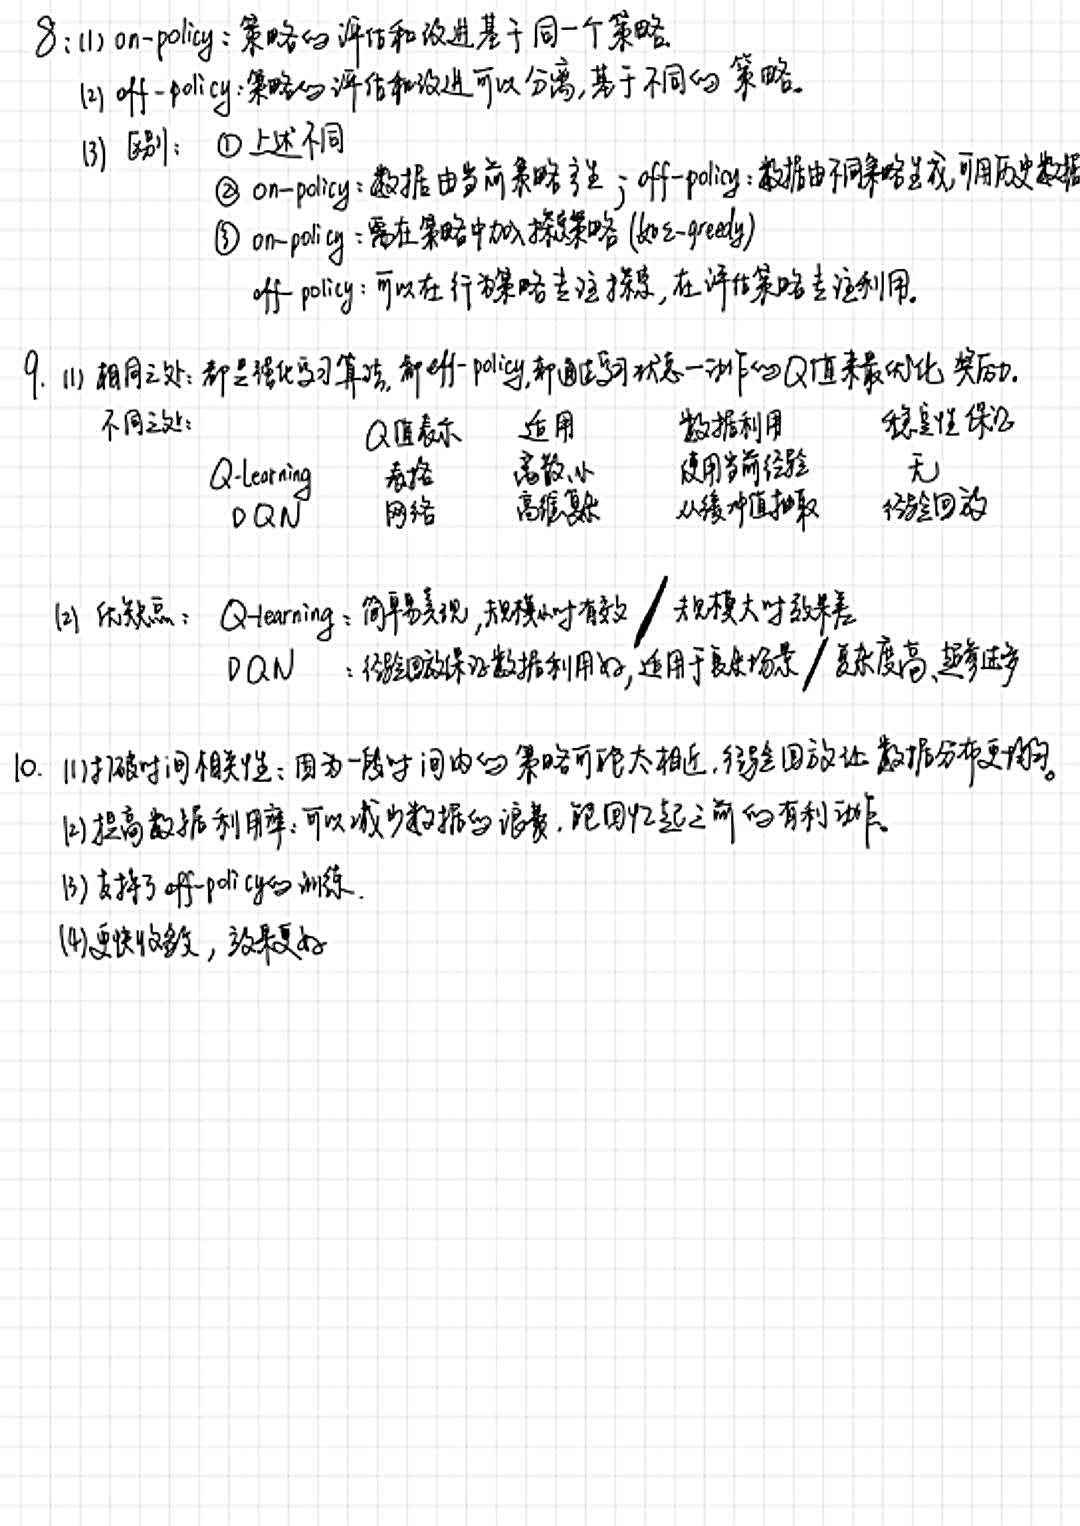 8:(1) on-policy:策略的评估和改进基于同一个策略.
(2) off-policy:策略的评估和改进可以分离,基于不同的策略。
(3) 区别: ①上述不同
② on-policy:数据由当前策略产生;off-policy:数据由不同策略生成,可用历史数据
③ on-policy:需在策略中加入探索策略(如ε-greedy)
off-policy:可以在行为策略专注探索,在评估策略专注利用。
9. (1) 相同之处:都是强化学习算法,都off-policy,都通过学习状态-动作的Q值来最优化奖励.
不同之处: Q值表示 适用 数据利用 稳定性保证
Q-learning 表格 离散、小 使用当前经验 无
DQN 网络 高维复杂 从缓冲值抽取 经验回放
(2) 优缺点: Q-learning:简单易实现,规模小时有效 / 规模大时效果差
DQN :经验回放保证数据利用好,适用于复杂场景 / 复杂度高、超参过多
10. (1)打破时间相关性:因为一段时间内的策略可能太相近,经验回放让数据分布更均匀。
(2)提高数据利用率:可以减少数据的浪费,能回忆起之前的有利动作。
(3)支持了off-policy的训练.
(4)更快收敛,效果更好